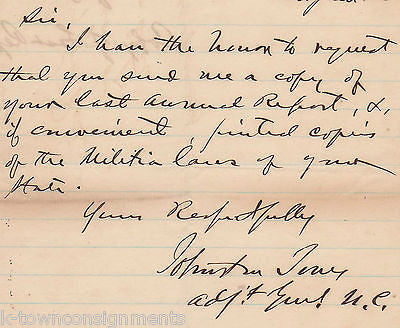 Sir,
I have the honor to request
that you send me a copy of
your last annual Report, &,
if convenient, printed copies
of the Militia laws of your
State.
Yours Respectfully
Johnston Jones
Adj't Genl. N.C.
k-townconsignments